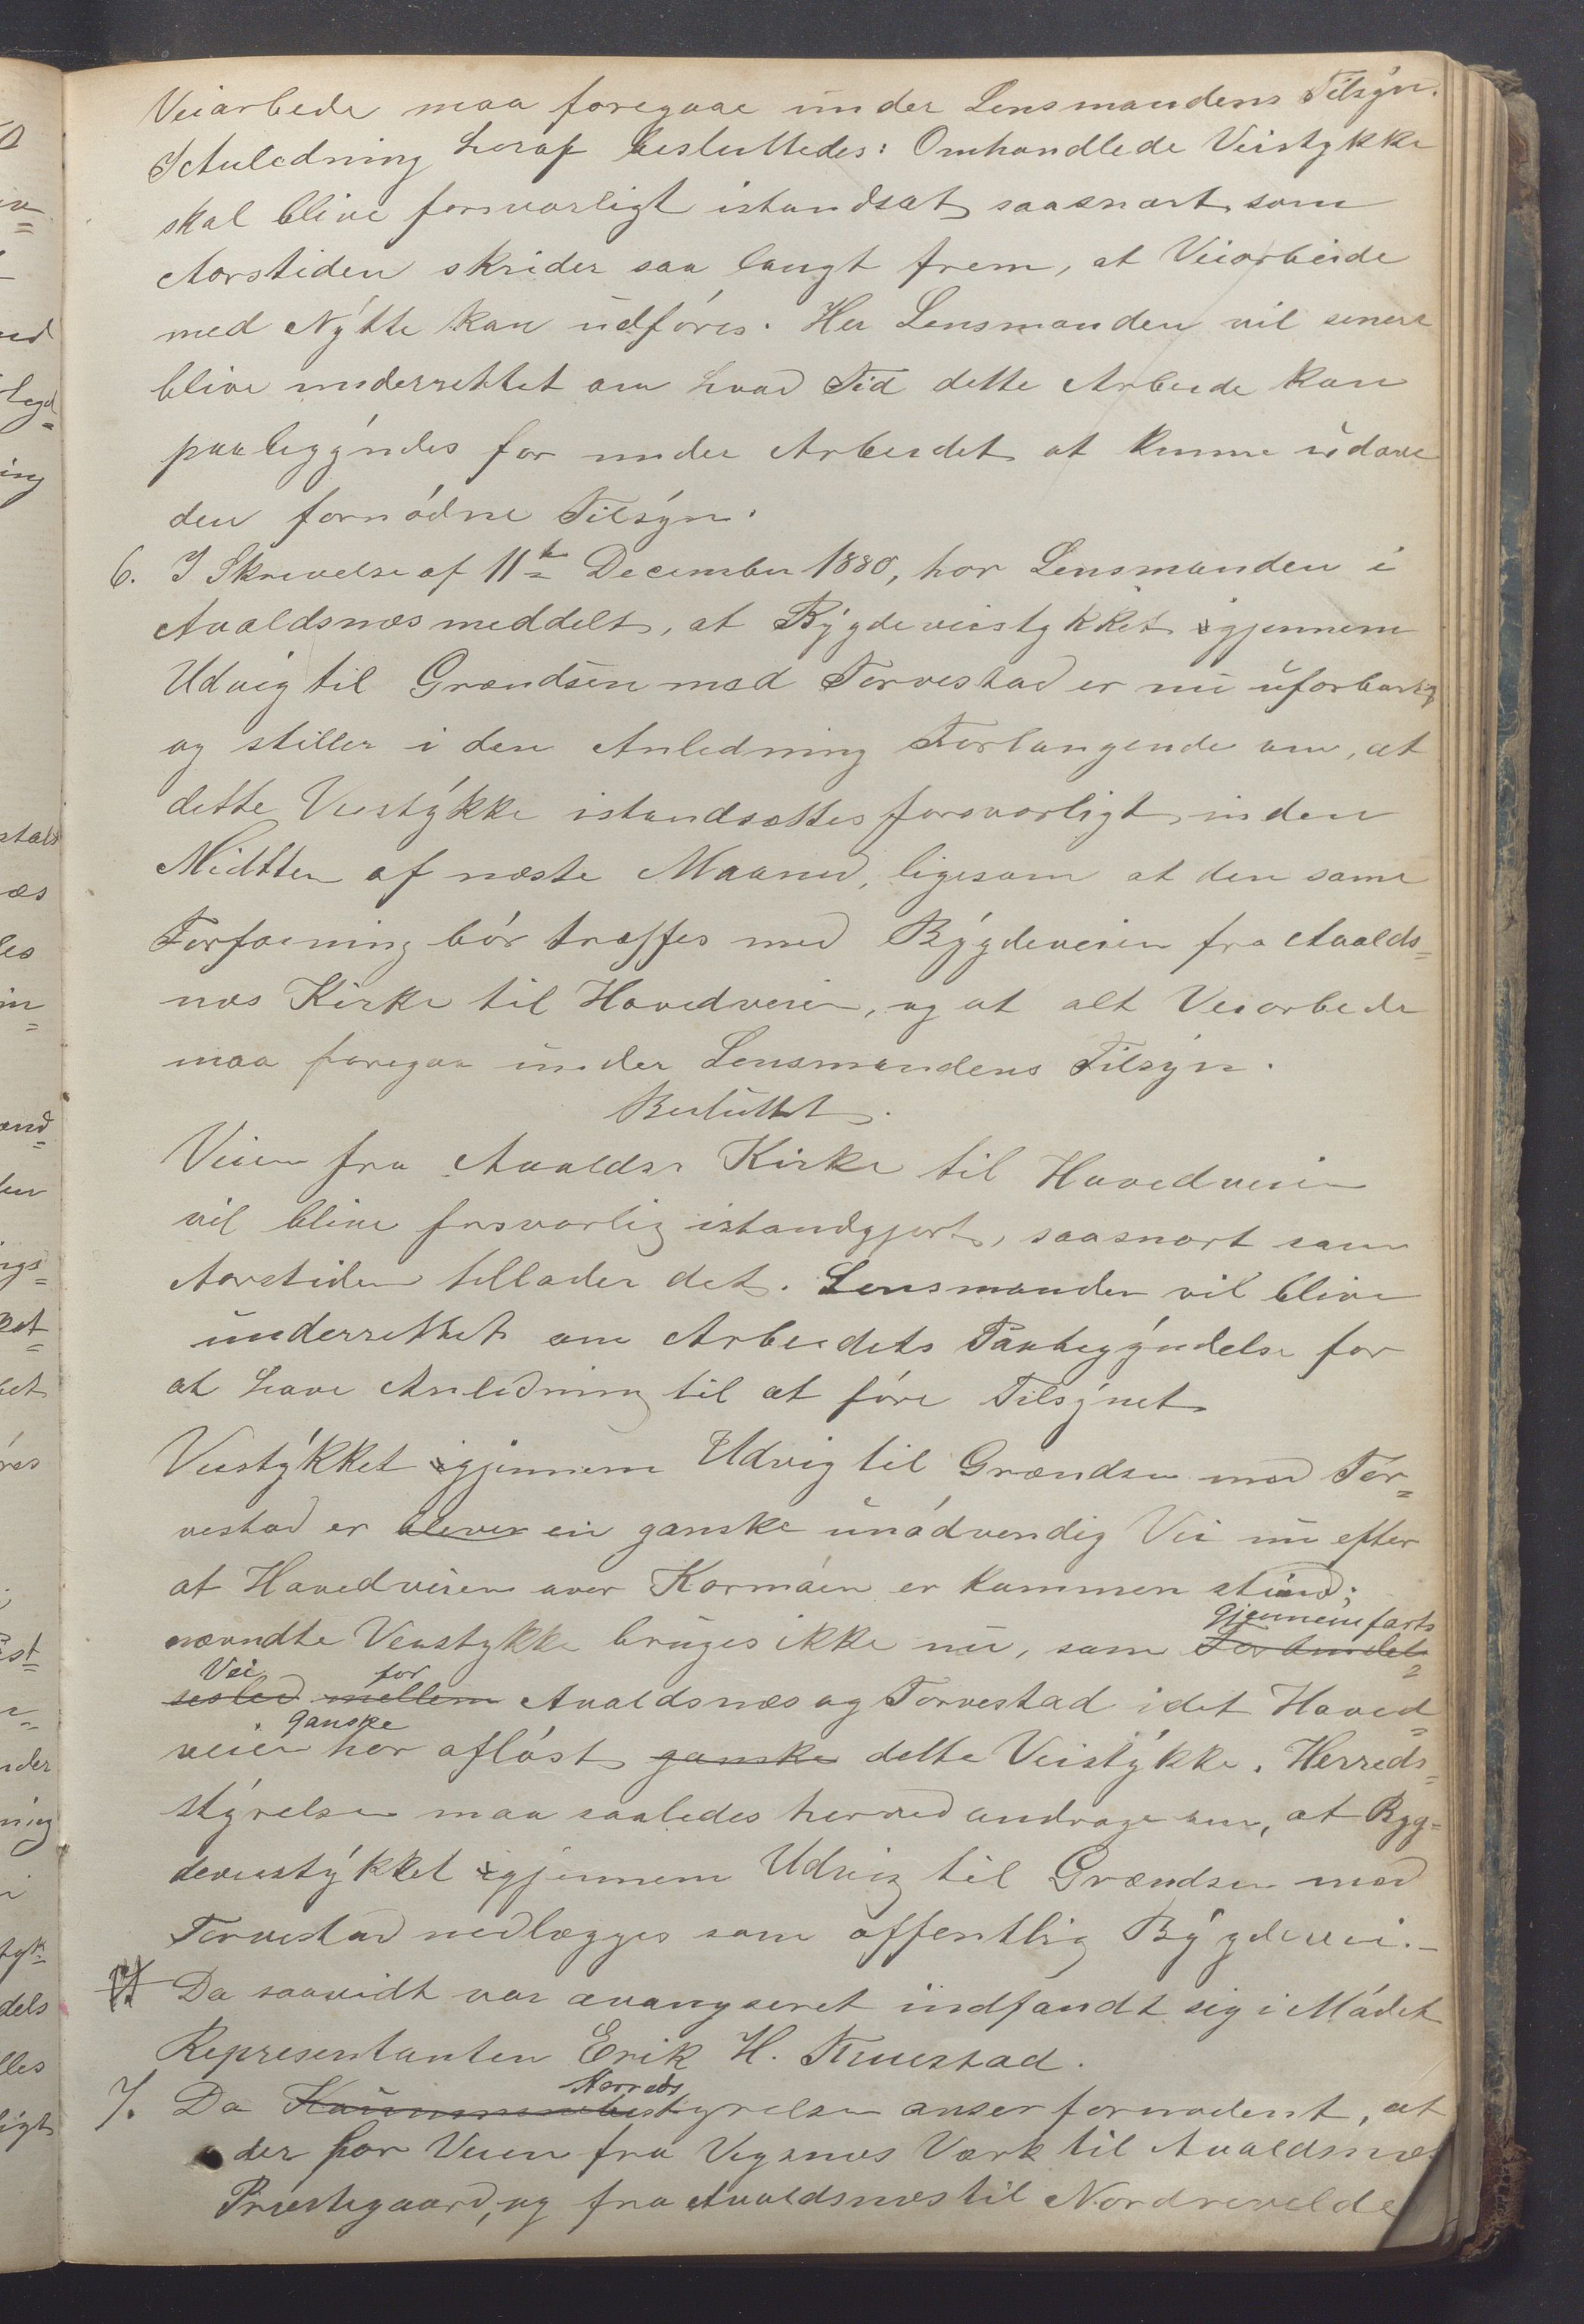 Veiarbeide maa foregaae under Lensmandens Tilsyn.
I Anledning heraf besluttedes: Omhandlede Veistykke
skal blive forsvarligt istandsat saasnart som
Aarstiden skrider saa langt frem, at Veiarbeide
med Nytte kan udføres. Her Lensmanden vil senere
blive underrettet om hvad Tid dette Arbeide kan
paabegyndes for under Arbeidet at kunne udøve
den fornødne Tilsyn.
6. I Skrivelse af 11te December 1880, har Lensmanden i
Avaldsnæs meddelt, at Bygdeveistykket igjennem
Udvig til Grændsen mod Torvestad er nu uforbarlig
og stiller i den Anledning Forlangende om, at
dette Veistykke istandsættes forsvarligt inden
Midtten af næste Maaned, ligesom at den samme
Forføining bør træffes med Bygdeveien fra Avalds=
næs Kirke til Hovedveien, og at alt Veiarbeide
maa foregaa under Lensmandens Tilsyn.
Besluttet.
Veien fra Avaldsn Kirke til Hovedveien
vil blive forsvarlig istandgjort, saasnart som
Aarstiden tillader det. Lensmanden vil blive
underrettet om Arbeidets Paabegyndelse for
at have Anledning til at føre Tilsynet
Veistykket igjennem Udvig til Grændsen mod Tor=
vestad er bliver en ganske unødvendig Vei nu efter
at Hovedveien over Karmøen er kommen istand;
nævndte Veistykke bruges ikke nu, som Gjennemfarts Forbindel=
Vei sesled for mellem Avaldsnæs og Torvestad idet Hoved=
veien har ganske afløst ganske dette Veistykke. Herreds=
styrelsen maa saaledes herved andrage om, at Byg=
deveistykket igjennem Udvig til Grændsen mod
Torvestad nedlægges som offentlig Bygdevei.-
7. Da saavidt var avangseret indfandt sig i Mødet
Representanten Erik H. Thuestad.
7. Da Kommune Herreds bestyrelsen anser fornødent, at
der for Veien fra Vigsnæs Værk til Avaldsnæs
Præstegaard, og fra Avaldsnæs til Nordrevelde